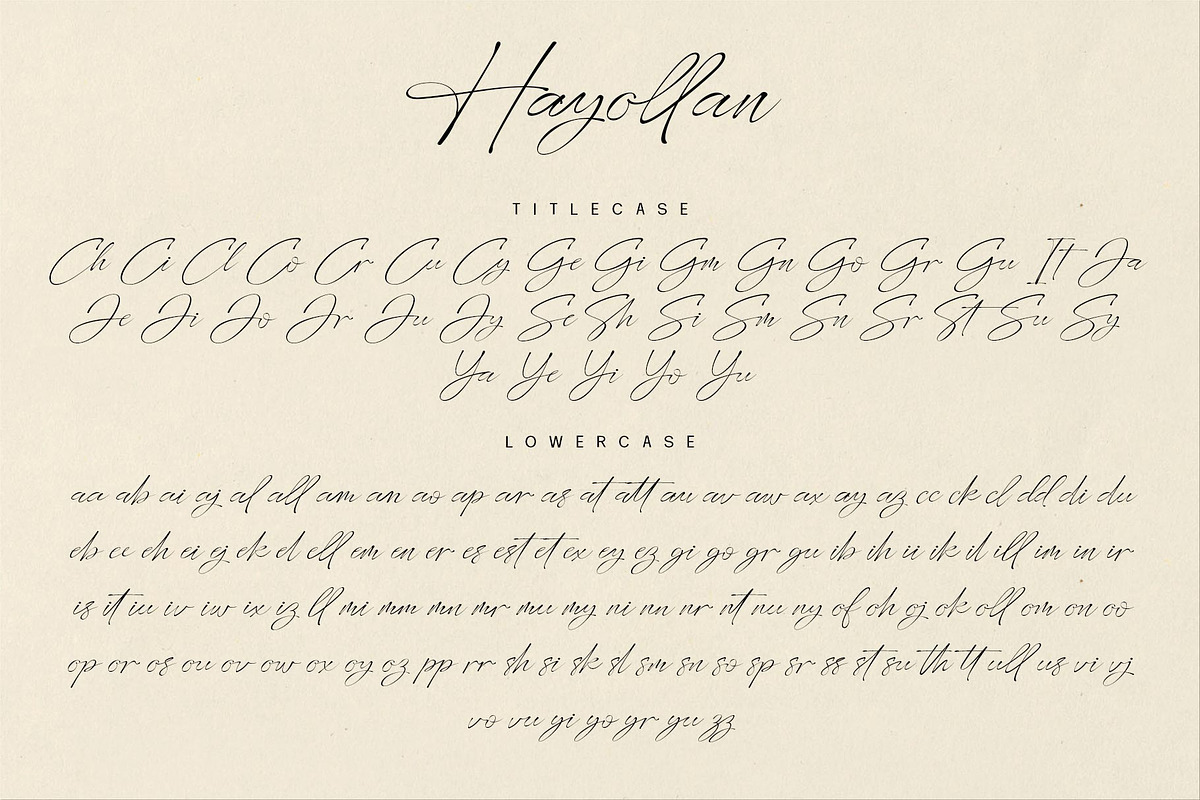 Hayollan
TITLECASE
Ch Ci Cl Co Cr Cu Cy Ge Gi Gm Gn Go Gr Gu It Ja
Je Ji Jo Jr Ju Jy Se Sh Si Sm Sn Sr St Su Sy
Ya Ye Yi Yo Yu
LOWERCASE
aa ab ai aj al all am an ao ap ar as at att au av aw ax ay az cc ck cl dd di du
eb ee eh ei ej ek el ell em en er es est et ex ey ez gi go gr gu ib ih ii ik il ill im in ir
is it iu iv iw ix iz ll mi mm mn mr mu my ni nn nr nt nu ny of oh oj ok oll om on oo
op or os ou ov ow ox oy oz pp rr sh si sk sl sm sn so sp sr ss st su th tt ull us vi vj
vo vu yi yo yr yu zz